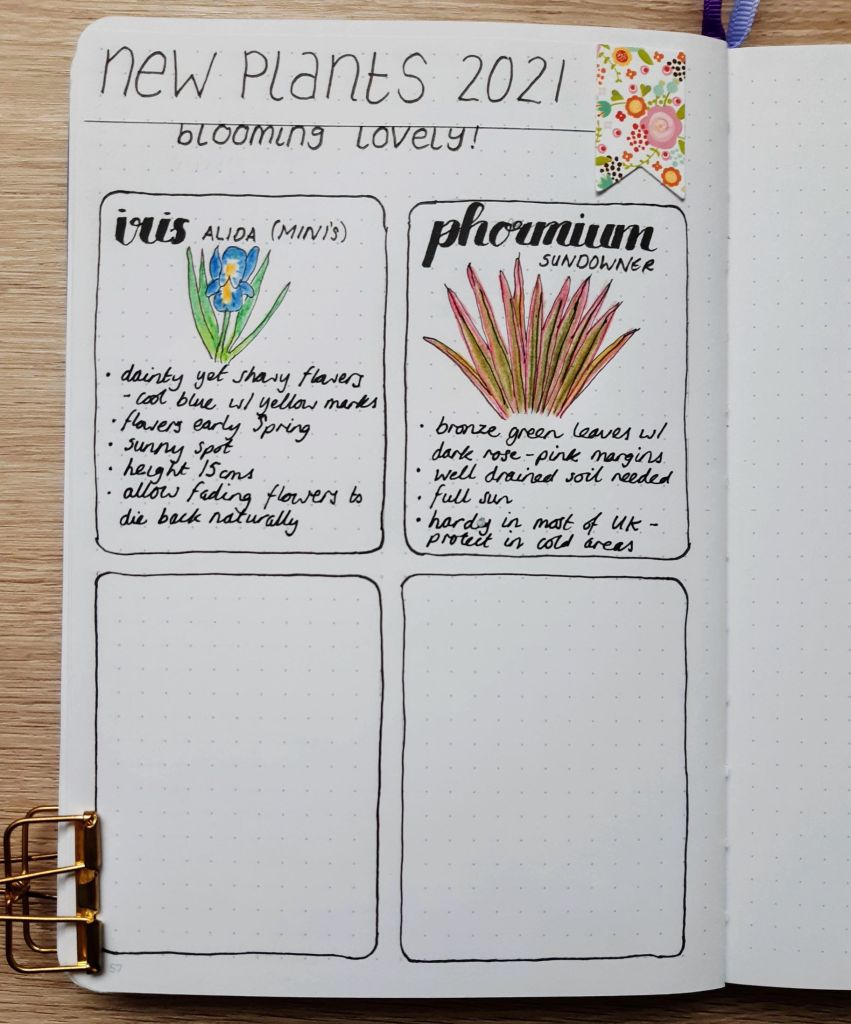 new Plants 2021
blooming lovely!
iris ALIDA (MINI'S)
• dainty yet showy flowers
- cool blue w/ yellow marks
• flowers early Spring
• sunny spot
• height 15cms
• allow fading flowers to
die back naturally
phormium
SUNDOWNER
• bronze green leaves w/
dark rose-pink margins
• well drained soil needed
• full sun
• hardy in most of UK -
protect in cold areas
57